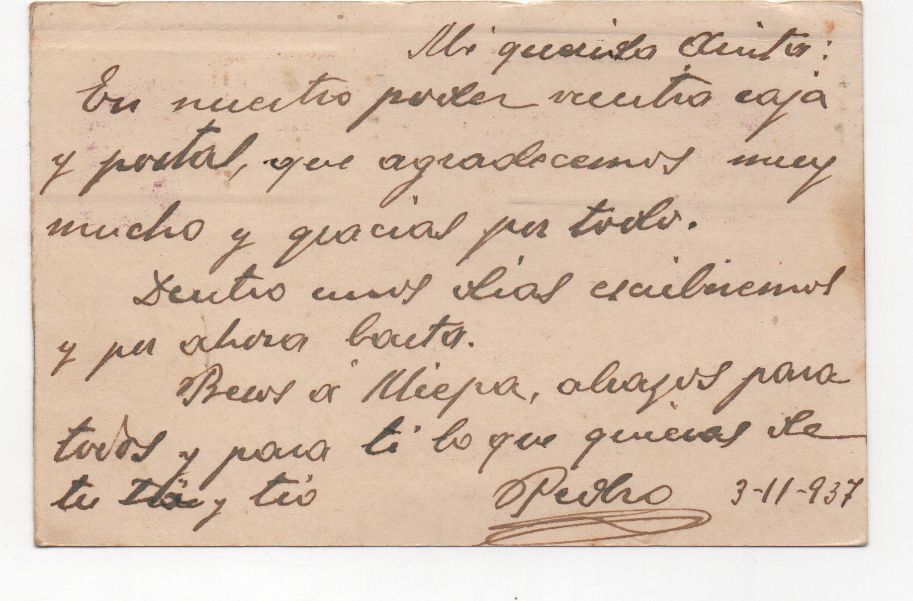 Mi querida Anita:
En nuestro poder vuestra caja
y postal, que agradecemos muy
mucho y gracias por todo.
Dentro unos dias escribiremos
y por ahora basta.
Besos á Miepa, abrazos para
todos y para ti lo que quieras de
tu tia y tio Pedro 3-11-937